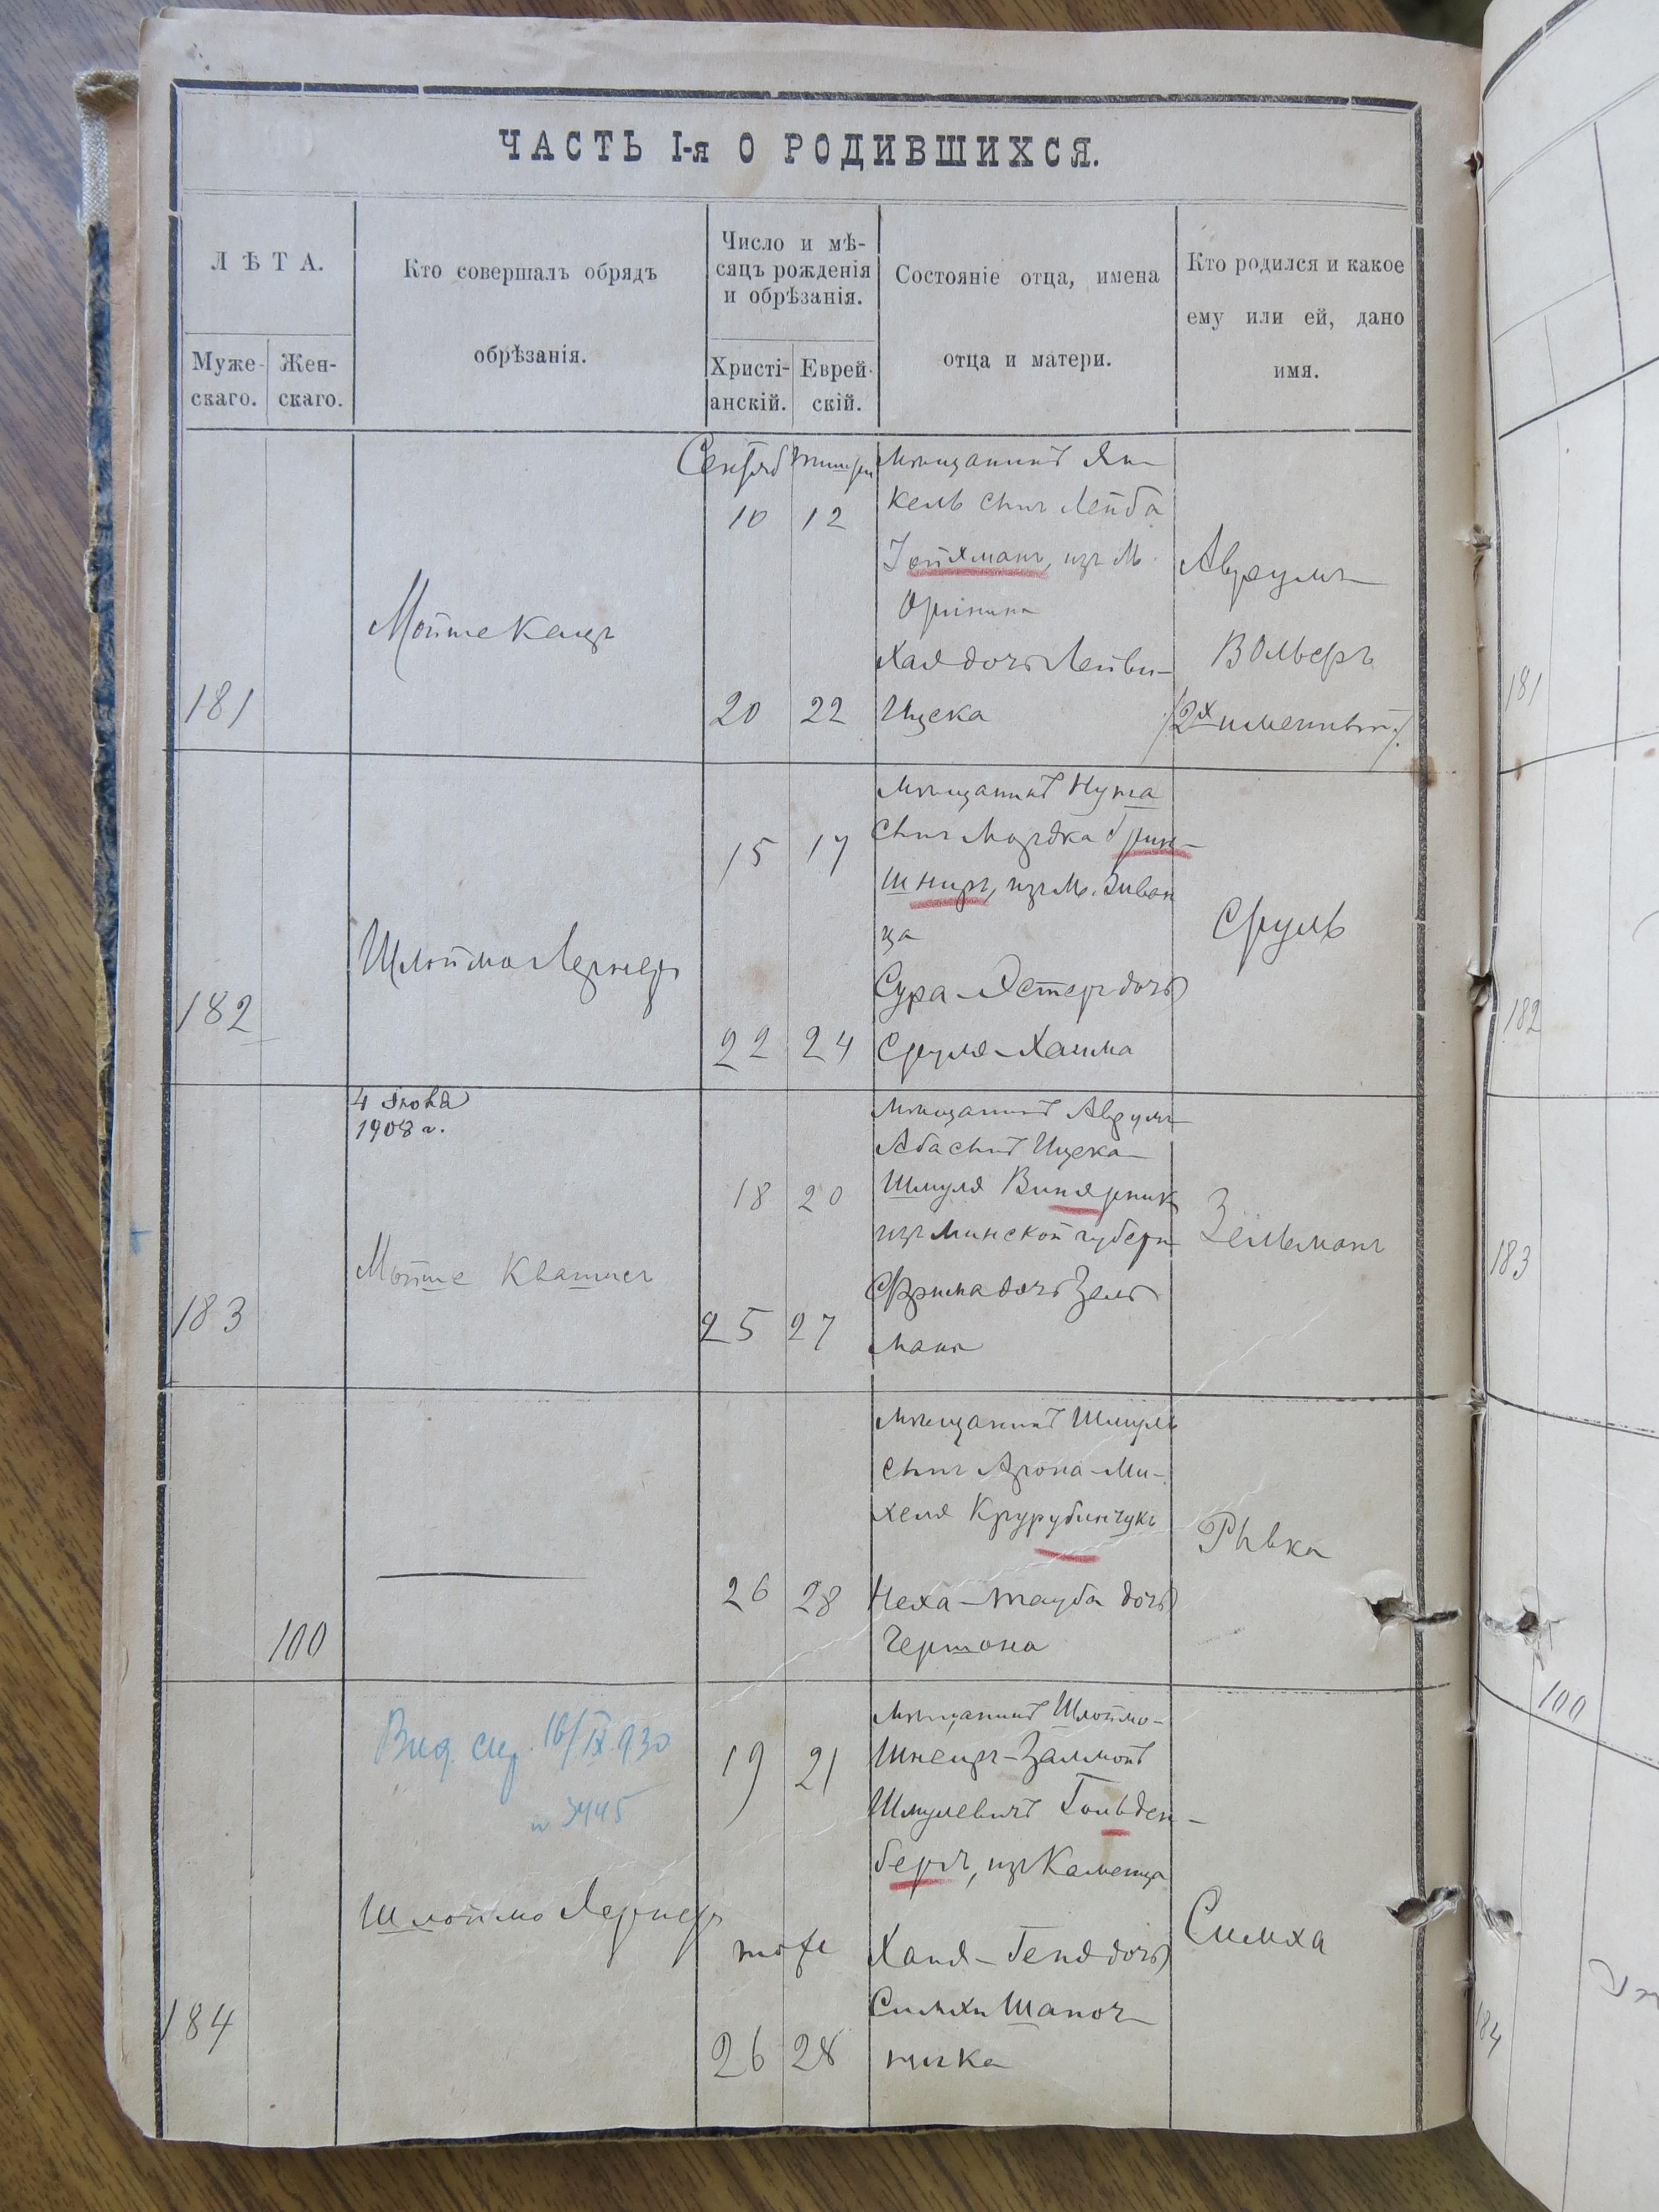 ЧАСТЬ I-я О РОДИВШИХСЯ.
ЛѢТА.
Муже-
скаго.
Жен-
скаго.
Кто совершалъ обрядъ
обрѣзанія.
Число и мѣ-
сяцъ рожденія
и обрѣзанія.
Христі-
анскій.
Еврей-
скій.
Состояніе отца, имена
отца и матери.
Кто родился и какое
ему или ей, дано
имя.
181
Мойше Кацъ
Сентяб
Тишри
10 12
20 22
Мѣщанинъ Ян-
кель сынъ Лейба
изъ М.
Оринина
Хая дочь Лейви-
Ицека
Аврумъ
Вольфъ
/2х именный/
181
182
Шлойма Лернеръ
15 17
22 24
Мѣщанинъ Нута
сынъ Мордка Грин-
шниръ, изъ М. Жван
ца
Сура-Эстеръ дочь
Сруля-Хаима
Сруль
182
183
4 Іюня
1908 г.
Мойше
18 20
25 27
Мѣщанинъ Аврумъ
Аба сынъ Ицека-
Шмуля Винярник
изъ Минской губерн
Фрима дочь Зель
мана
Зельманъ
183
100
26 28
Мѣщанинъ Шмуль
сынъ Арона-Ми-
хеля
Неха-Тауба дочь
Гершона
Рывка
100
184
16/IX 930
№ 3445
Шлойма Лернеръ
19 21
тоже
26 28
Мѣщанинъ Шлоймо-
Шнеиръ-Залмонъ
Шмулевичъ Гольден-
бергъ, изъ Каменца
Ханя-Геня дочь
Симхи Шапоч-
ника
Симха
184